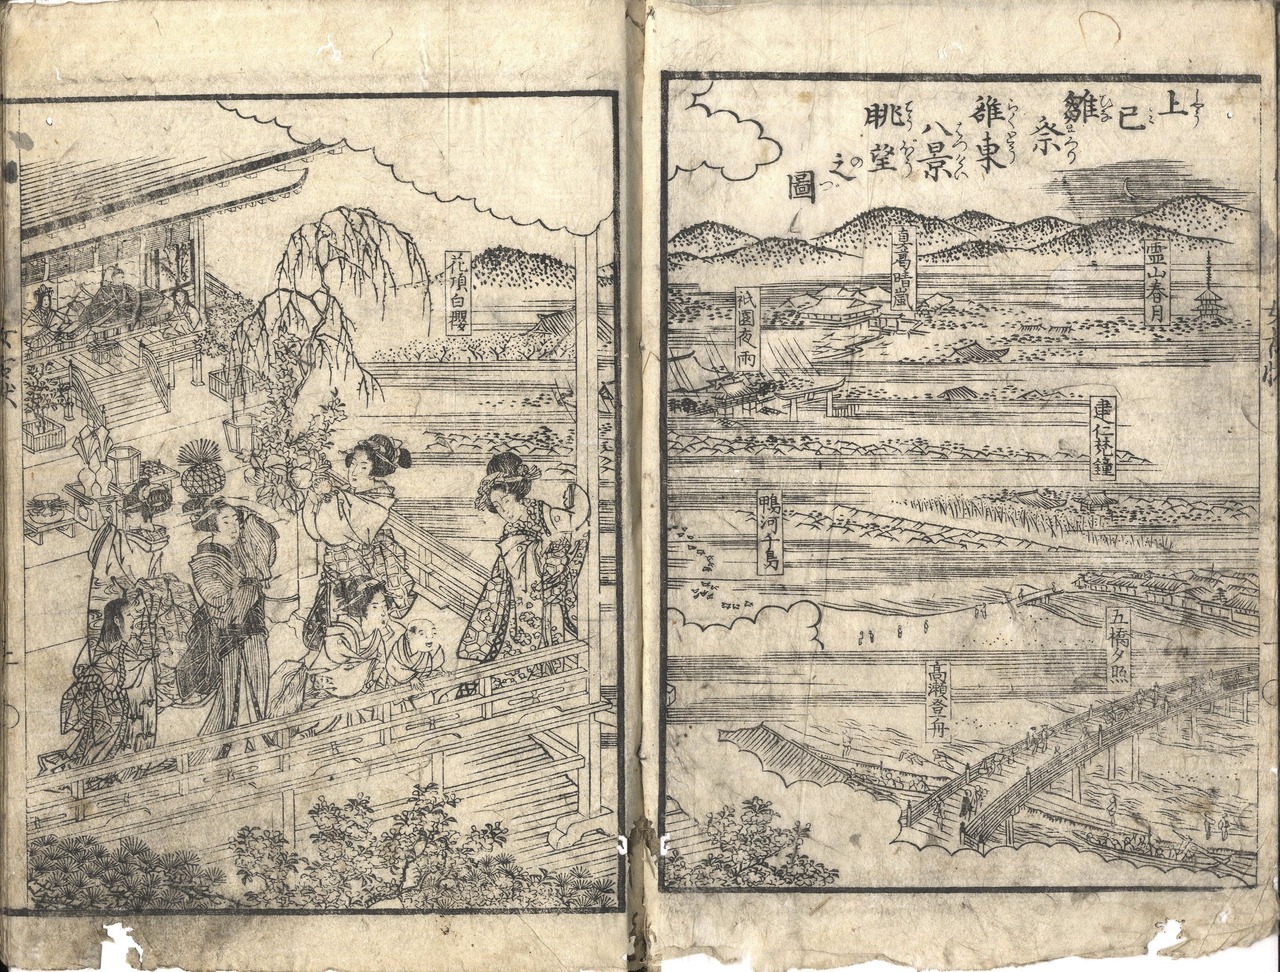 上巳
雛祭
雒東
八景
眺望
之
圖
霊山春月
真葛晴嵐
祇園夜雨
建仁梵鐘
鴨河千鳥
五橋夕照
高瀬登舟
花頂白櫻